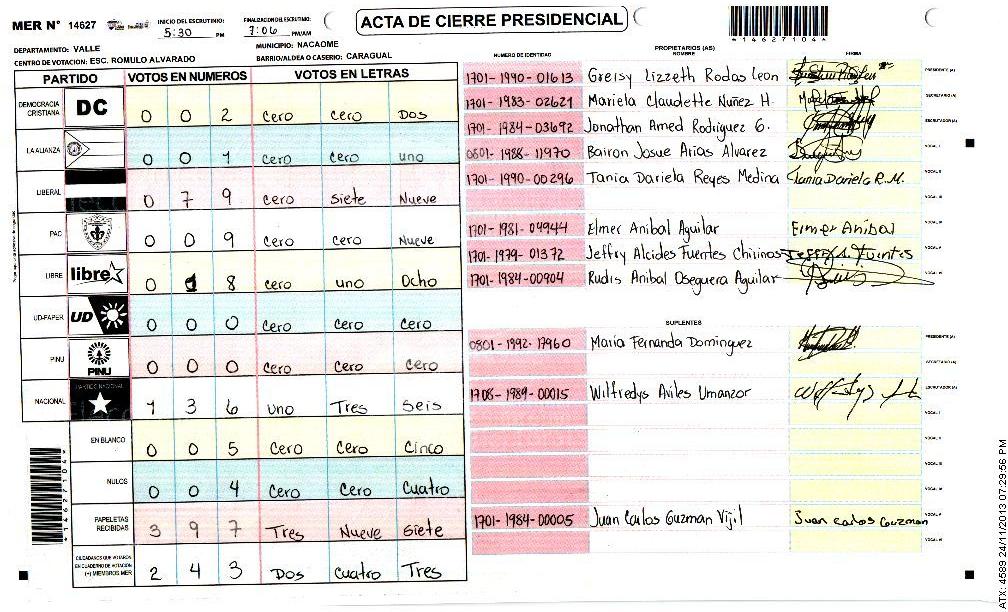 MER N° 14627
INICIO DEL ESCRUTINIO:
5:30 PM
FINALIZACION DEL ESCRUTINIO:
7:06 PM/AM
ACTA DE CIERRE PRESIDENCIAL
*14627104*
DEPARTAMENTO: VALLE
MUNICIPIO: NACAOME
CENTRO DE VOTACION: ESC. ROMULO ALVARADO
BARRIO/ALDEA O CASERIO: CARAGUAL
PARTIDO VOTOS EN NUMEROS VOTOS EN LETRAS
DEMOCRACIA CRISTIANA DC 0 0 2 cero cero Dos
LA ALIANZA 0 0 1 cero cero uno
LIBERAL 0 7 9 cero siete Nueve
PAC 0 0 9 cero cero Nueve
LIBRE libre 0 1 8 cero uno Ocho
UD-FAPER UD 0 0 0 cero cero cero
PINU PINU 0 0 0 cero cero cero
NACIONAL PARTIDO NACIONAL 1 3 6 uno Tres Seis
EN BLANCO 0 0 5 Cero Cero Cinco
NULOS 0 0 4 Cero Cero Cuatro
PAPELETAS RECIBIDAS 3 9 7 Tres Nueve Siete
CIUDADANOS QUE VOTARON EN CUADERNO DE VOTACION (+) MIEMBROS MER 2 4 3 Dos cuatro Tres
*14627104*
PROPIETARIOS (AS)
NUMERO DE IDENTIDAD NOMBRE FIRMA
1701-1990-01613 Greisy Lizzeth Rodas Leon PRESIDENTE (A)
1701-1983-02621 Mariela Claudette Nuñez H. SECRETARIO (A)
1701-1984-03692 Jonathan Amed Rodriguez G. ESCRUTADOR (A)
0801-1988-11970 Bairon Josue Arias Alvarez VOCAL I
1701-1990-00296 Tania Dariela Reyes Medina Tania Dariela R.M. VOCAL II
1701-1981-04944 Elmer Anibal Aguilar Elmer Anibal
1701-1979-01372 Jeffry Alcides Fuentes Chirinos Jeffry A. Fuentes
1701-1984-00904 Rudis Anibal Oseguera Aguilar
SUPLENTES
0801-1992-17960 Maria Fernanda Dominguez PRESIDENTE (A)
SECRETARIO (A)
1708-1989-00015 Wilfredys Aviles Umanzor ESCRUTADOR (A)
VOCAL I
VOCAL II
1701-1984-00005 Juan Carlos Guzman Vijil Juan carlos Guzman
ATX: 4589 24/11/2013 07:29:56 PM